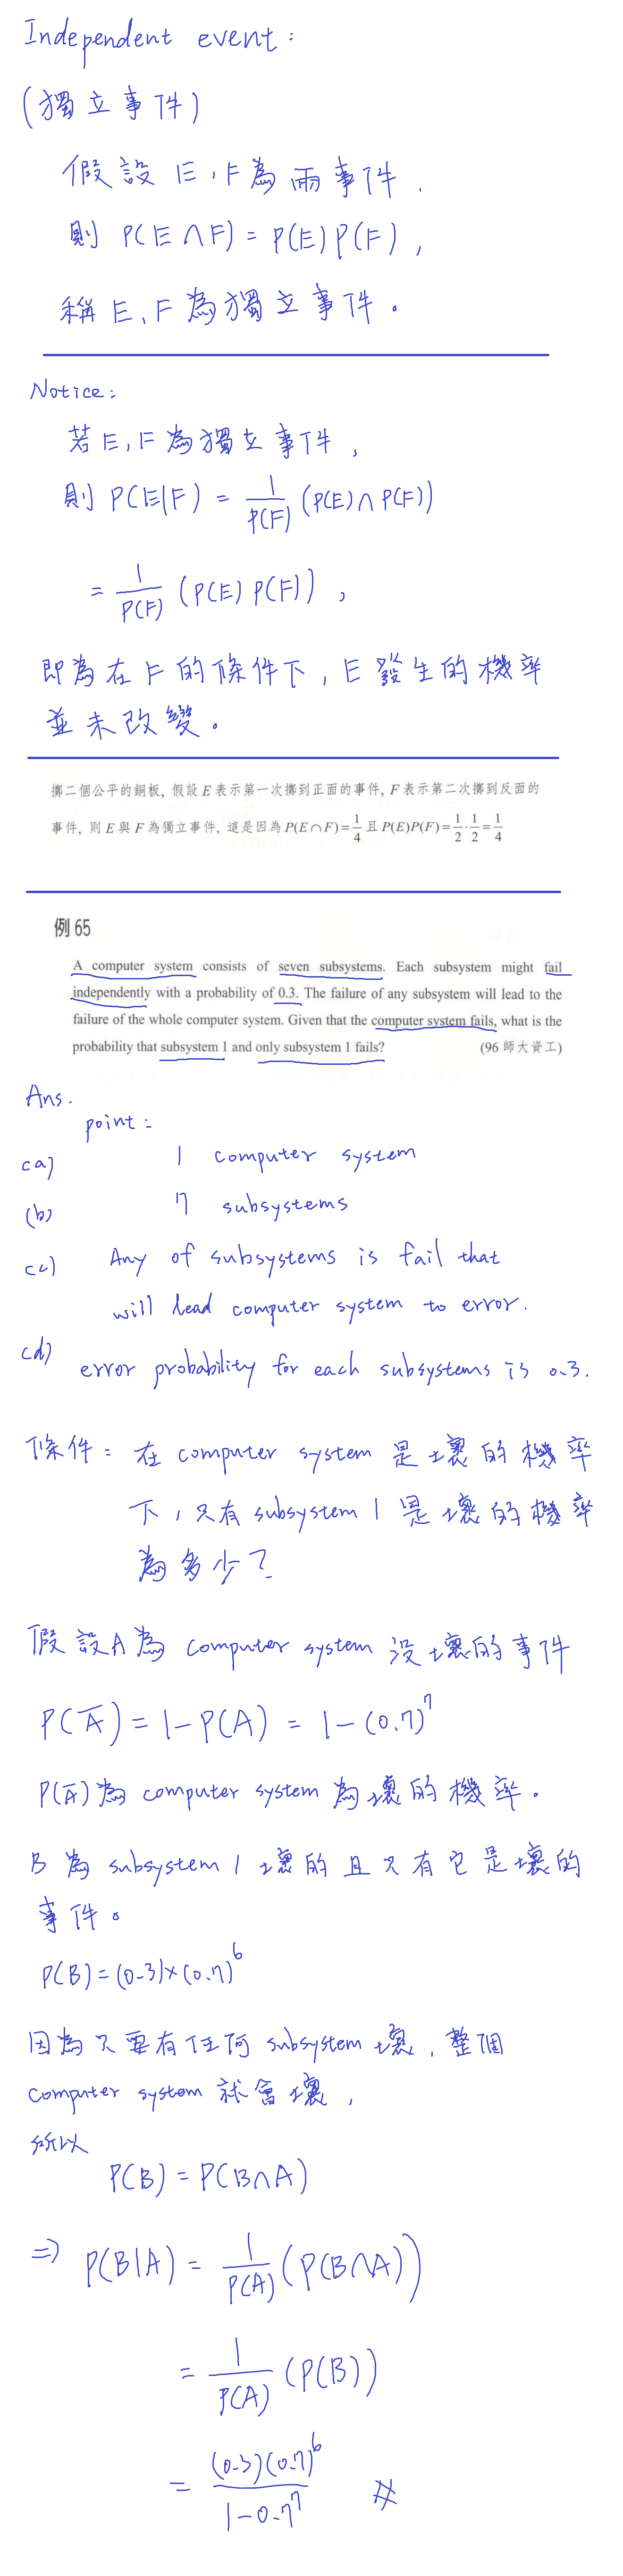 Independent event:
(獨立事件)
假設 E, F為兩事件,
則 P(E∩F) = P(E)P(F),
稱 E, F 為獨立事件。
Notice:
若E, F 為獨立事件,
則 P(E|F) = 1/P(F) (P(E)∩P(F))
= 1/P(F) (P(E)P(F)),
即為在 F 的條件下, E 發生的機率
並未改變。
擲二個公平的銅板, 假設 E 表示第一次擲到正面的事件, F 表示第二次擲到反面的
事件, 則 E 與 F 為獨立事件, 這是因為 P(E∩F)=1/4 且 P(E)P(F)=1/2·1/2=1/4
例 65
A computer system consists of seven subsystems. Each subsystem might fail
independently with a probability of 0.3. The failure of any subsystem will lead to the
failure of the whole computer system. Given that the computer system fails, what is the
probability that subsystem 1 and only subsystem 1 fails? (96 師大資工)
Ans.
point:
(a) 1 computer system
(b) 7 subsystems
(c) Any of subsystems is fail that
will lead computer system to error.
(d) error probability for each subsystems is 0.3.
條件: 在 computer system 是壞的機率
下, 只有 subsystem 1 是壞的機率
為多少?
假設A為 computer system 沒壞的事件
P(A̅) = 1-P(A) = 1-(0.7)⁷
P(A̅)為 computer system 為壞的機率。
B 為 subsystem 1 壞的且只有它是壞的
事件。
P(B)=(0.3)×(0.7)⁶
因為只要有任何 subsystem 壞, 整個
computer system 就會壞,
所以
P(B) = P(B∩A)
⇒ P(B|A) = 1/P(A) (P(B∩A))
= 1/P(A) (P(B))
= (0.3)(0.7)⁶/1-0.7⁷ #